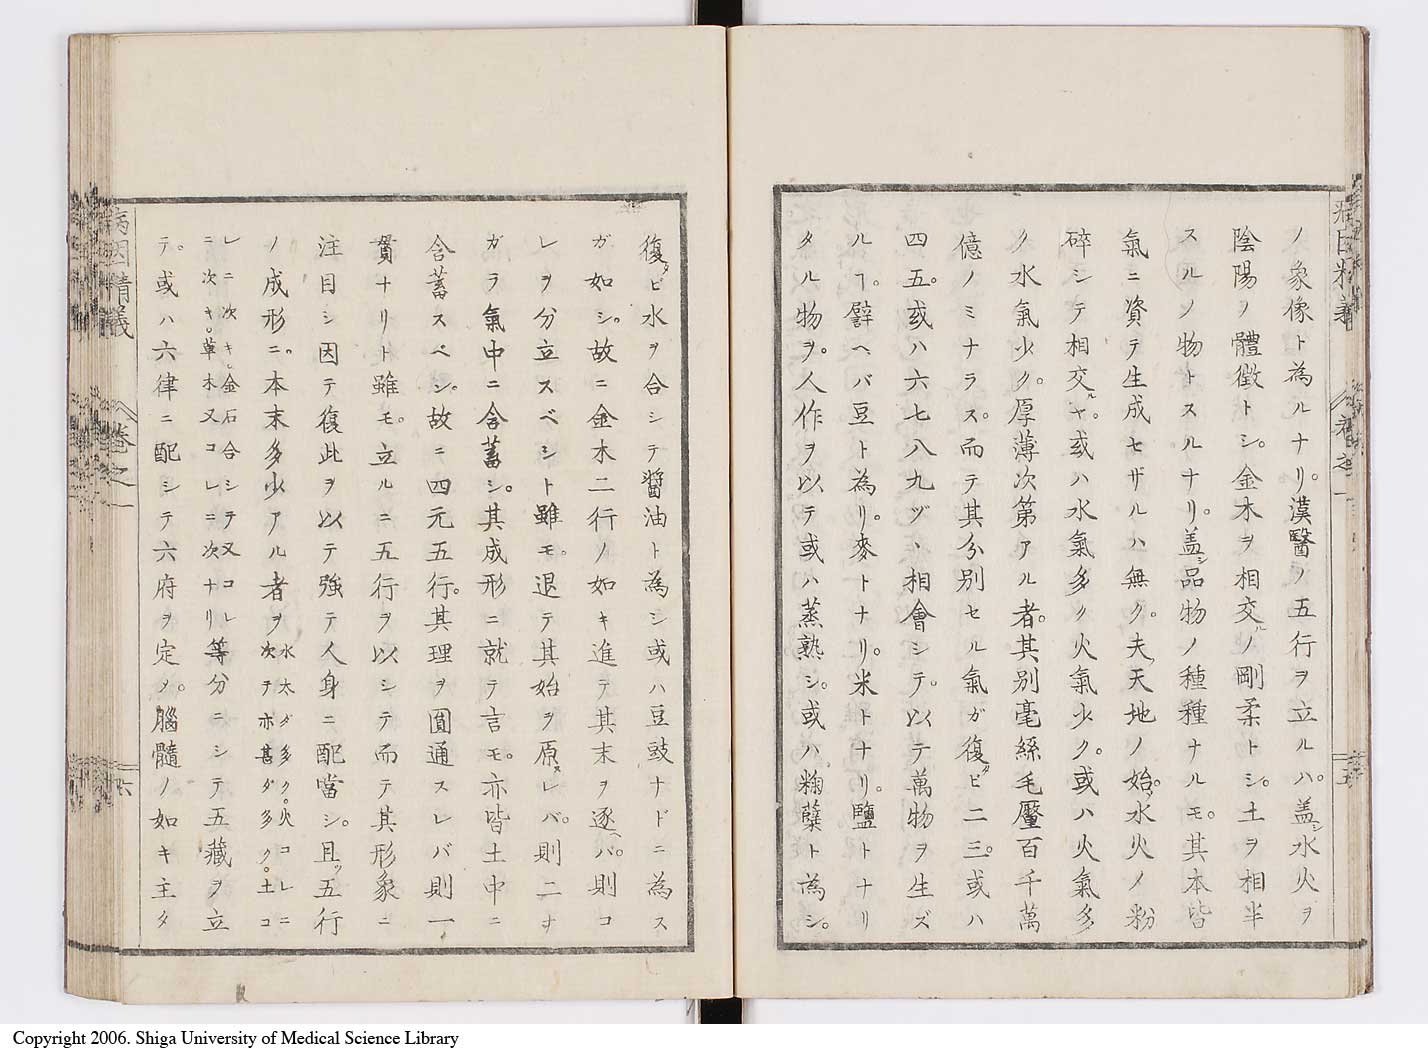 ノ象像ト為ルナリ。漢醫ノ五行ヲ立ルハ。盖シ水火ヲ
陰陽ノ體徵トシ。金木ヲ相交ルノ剛柔トシ。土ヲ相半
スルノ物トスルナリ。盖シ品物ノ種種ナルモ。其本皆
氣ニ資テ生成セザルハ無ク。夫レ天地ノ始。水火ノ粉
碎シテ相交ルヤ。或ハ水氣多ク火氣少ク。或ハ火氣多
ク水氣少ク。厚薄次第アル者。其別毫絲毛釐百千萬
億ノミナラス。而テ其分別セル氣ガ復タビ二三。或ハ
四五。或ハ六七八九ヅヽ相會シテ。以テ萬物ヲ生ズ
ルヿ。譬ヘバ豆ト為リ。麥トナリ。米トナリ。鹽トナリ
タル物ヲ。人作ヲ以テ或ハ蒸熟シ。或ハ麹糵ト為シ。
復タビ水ヲ合シテ醬油ト為シ或ハ豆豉ナドニ為ス
ガ如シ。故ニ金木二行ノ如キ進テ其末ヲ逐ヘバ。則コ
レヲ分立スベシト雖モ。退テ其始ヲ原ヌレバ。則二ナ
ガラ氣中ニ含蓄シ。其成形ニ就テ言モ。亦皆土中ニ
含蓄スベシ。故ニ四元五行。其理ヲ圓通スレバ則一
貫ナリト雖モ。立ルニ五行ヲ以シテ而テ其形象ニ
注目シ因テ復此ヲ以テ強テ人身ニ配當シ。且ツ五行
ノ成形ニ。本末多少アル者ヲ水太ダ多ク。火コレニ次テ亦甚ダ多ク。土コ
レニ次キ。金石合シテ又コレニ次キ。草木又コレニ次ナリ等分ニシテ五藏ヲ立
テ。或ハ六律ニ配シテ六府ヲ定メ。腦髓ノ如キ主タ
病因精義
巻之一
六
巻之一
五
Copyright 2006. Shiga University of Medical Science Library